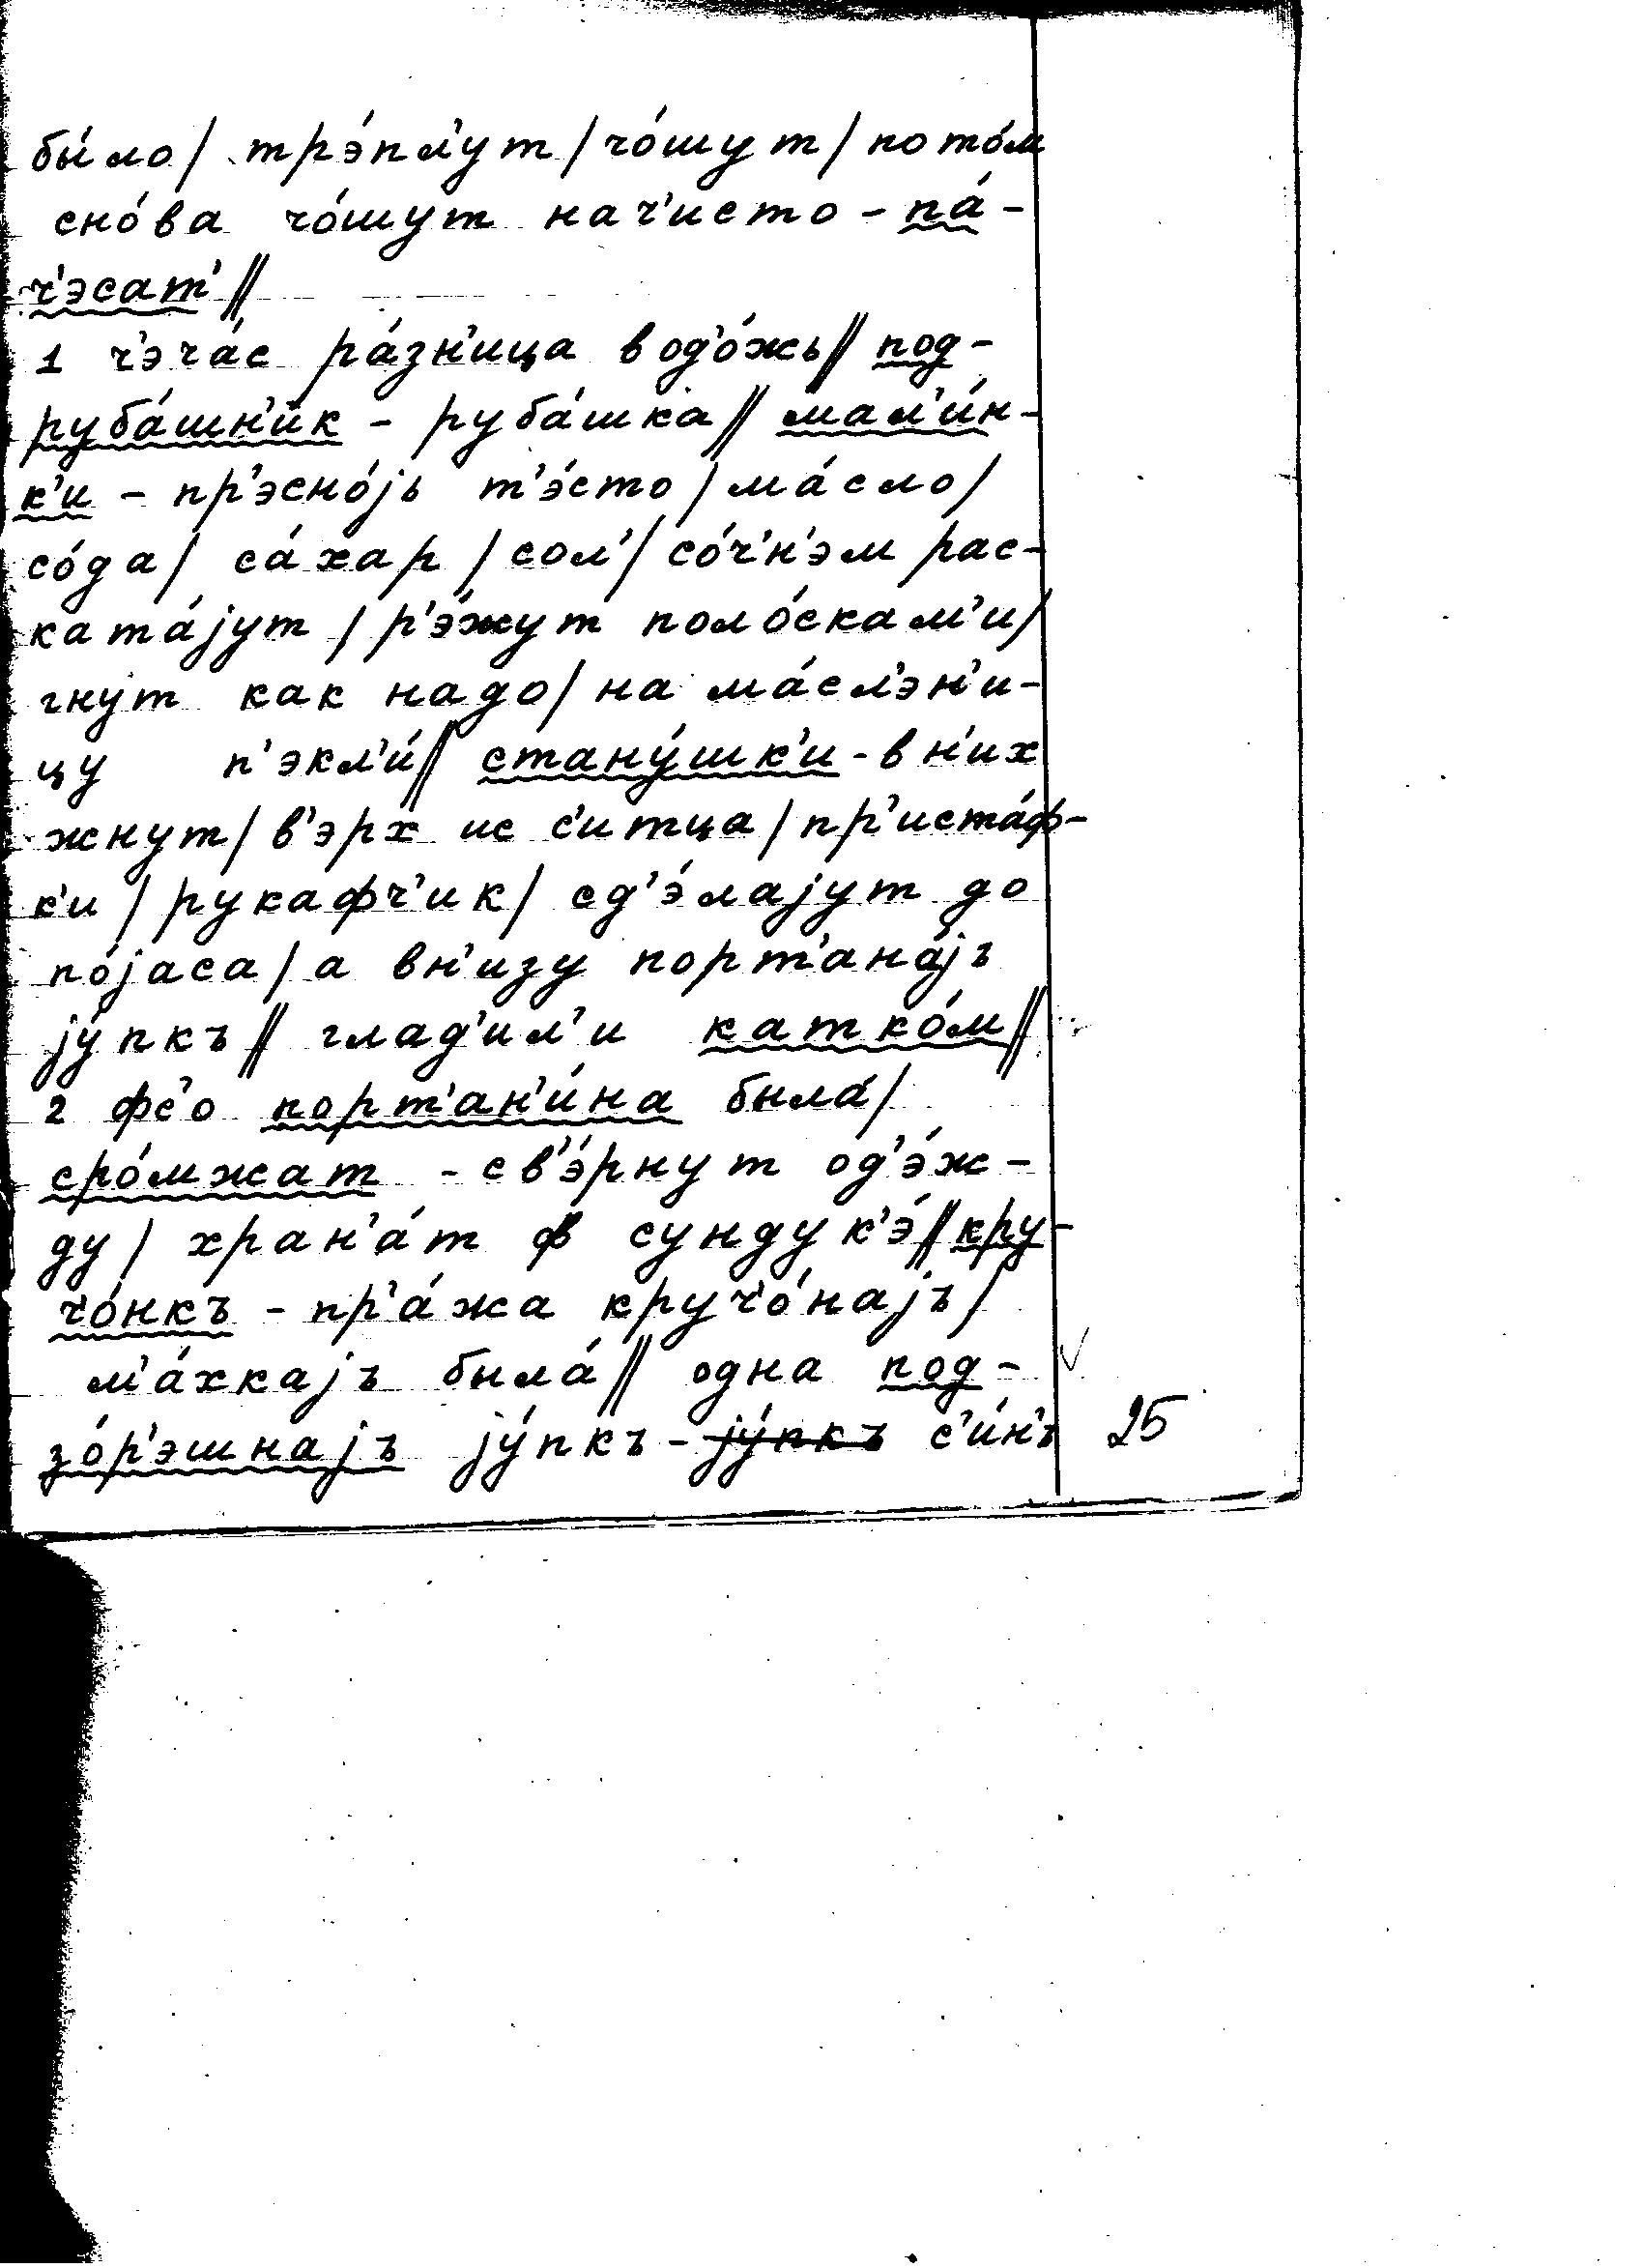 бы́ло / трэ́пл'ут / чо́шут / пото́м
сно́ва чо́шут нач'исто - па́-
ч'эсат' //
1 ч'эча́с ра́зн'ица в од'о́жь // под-
руба́шн'ик - руба́шка // мал'и́н-
к'и - пр'эсно́jь т'э́сто / ма́сло /
со́да / са́хар / сол' / со́ч'н'эм рас-
ката́jут / р'э́жут поло́скам'и /
гнут как надо / на ма́сл'эн'и-
цу п'экл'и́ // стану́шк'и - в н'их
жнут / в'эрх ис с'итца / пр'иста́ф-
к'и / рукафч'ик / сд'э́лаjут до
по́jаса / а вн'изу порт'ана́jъ
jу́пкъ // глад'ил'и катко́м //
2 фс'о порт'ан'и́на была́ /
сро́мжат - св'э́рнут од'э́ж-
ду / хран'а́т ф сундук'э́ // кру-
чо́нкъ - пр'а́жа кручо́наjъ /
м'а́хкаjъ была́ // одна под-
зо́р'эшнаjъ jу́пкъ - jу́пкъ с'и́н'ъ
25